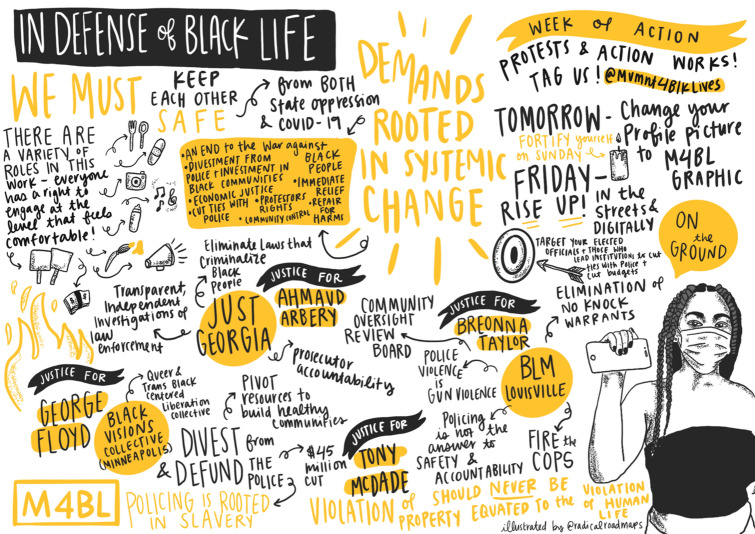 IN DEFENSE of BLACK LIFE
WE MUST
KEEP
EACH OTHER
SAFE
from BOTH
State oppression
& COVID-19
THERE ARE
A VARIETY OF
ROLES IN THIS
WORK - everyone
has a right to
engage at the
level that feels
comfortable!
• AN END to the War against
BLACK
PEOPLE
• DIVESTMENT FROM
POLICE + INVESTMENT IN
BLACK COMMUNITIES
• ECONOMIC JUSTICE
• CUT TIES WITH
POLICE
• PROTESTORS
RIGHTS
• COMMUNITY CONTROL
• IMMEDIATE
RELIEF
• REPAIR
FOR
HARMS
DEMANDS
ROOTED
IN SYSTEMIC
CHANGE
WEEK of ACTION
PROTESTS & ACTION WORKS!
TAG US! @Mvmnt4BlkLives
TOMORROW - Change your
Profile picture
to M4BL
GRAPHIC
FORTIFY yourself
on SUNDAY
FRIDAY -
RISE UP!
IN the
STREETS &
DIGITALLY
TARGET YOUR ELECTED
OFFICIALS + THOSE WHO
LEAD INSTITUTIONS to CUT
ties with Police +
Cut budgets
ON
the
GROUND
Eliminate Laws that
Criminalize
Black
People
Transparent,
Independent
Investigations of
law
enforcement
JUST
GEORGIA
JUSTICE FOR
AHMAUD
ARBERY
Prosecutor
accountability
COMMUNITY
OVERSIGHT
REVIEW
BOARD
JUSTICE FOR
BREONNA
TAYLOR
ELIMINATION OF
NO KNOCK
WARRANTS
POLICE
VIOLENCE
is
GUN VIOLENCE
BLM
LOUISVILLE
Policing
is not the
answer to
SAFETY &
ACCOUNTABILITY
FIRE the
COPS
JUSTICE FOR
GEORGE
FLOYD
Queer &
Trans Black
centered
liberation
collective
BLACK
VISIONS
COLLECTIVE
(MINNEAPOLIS)
PIVOT
resources to
build healthy
communities
DIVEST from
& DEFUND THE
POLICE
$45
million
CUT
JUSTICE FOR
TONY
McDADE
M4BL
POLICING IS ROOTED
IN SLAVERY
VIOLATION of
PROPERTY
SHOULD NEVER BE
EQUATED to the
VIOLATION
OF HUMAN
LIFE
illustrated by @radicalroadmaps